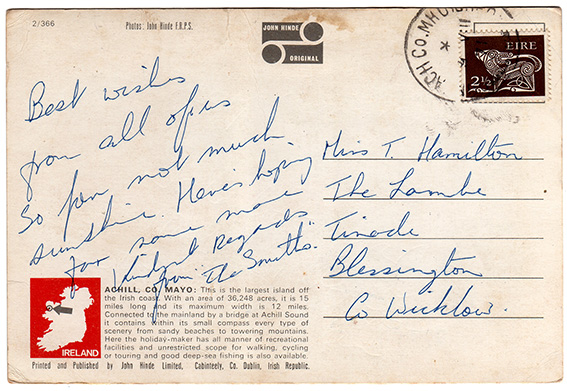 2/366
Photo: John Hinde F.R.P.S.
JOHN HINDE
ORIGINAL
ACH CO. MH
EIRE
2½
Best wishes
from all of us
So far not much
sunshine. Here's hoping
for some more
Kindest Regards
from The Smiths.
Miss T. Hamilton
The Lambe
Tinode
Blessington
Co Wicklow.
IRELAND
ACHILL, CO. MAYO: This is the largest island off
the Irish coast. With an area of 36,248 acres, it is 15
miles long and its maximum width is 12 miles.
Connected to the mainland by a bridge at Achill Sound
it contains within its small compass every type of
scenery from sandy beaches to towering mountains.
Here the holiday-maker has all manner of recreational
facilities and unrestricted scope for walking, cycling
or touring and good deep-sea fishing is also available.
Printed and Published by John Hinde Limited, Cabinteely, Co. Dublin, Irish Republic.